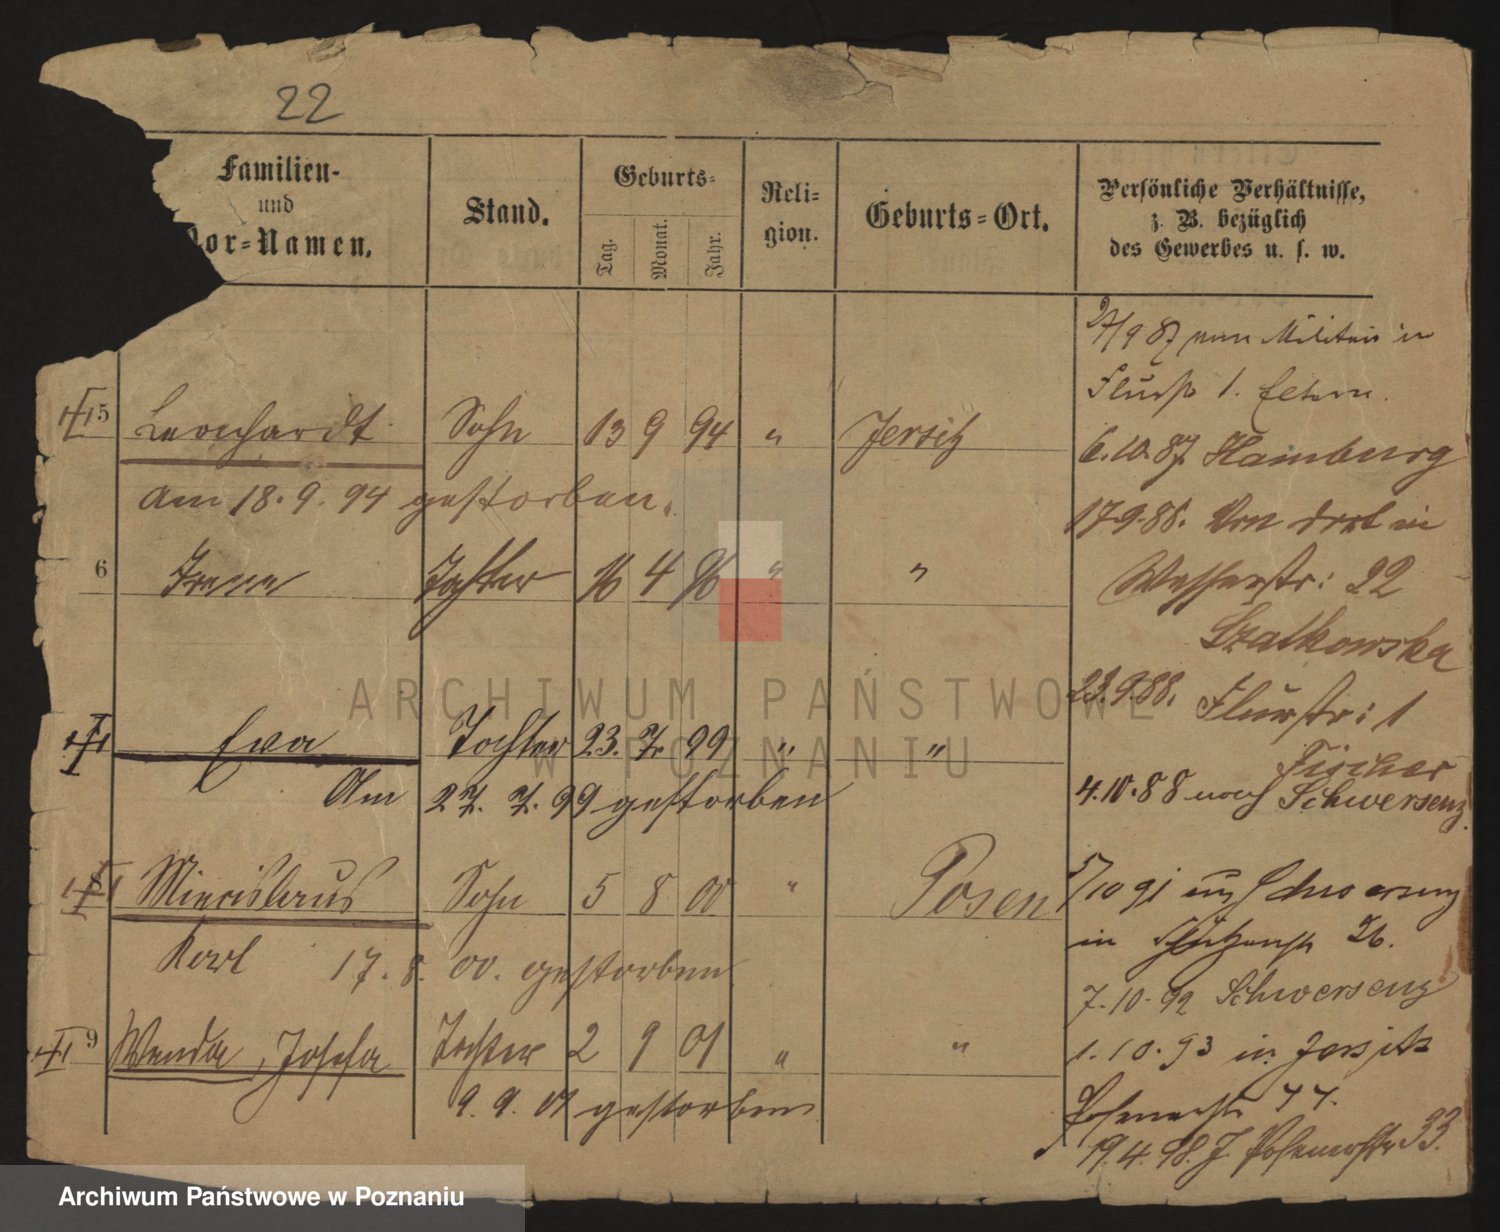 22
Familien-
und
Vor-Namen.
Stand.
Geburts-
Tag.
Monat.
Jahr.
Reli-
gion.
Geburts-Ort.
Persönliche Verhältnisse,
z. B. bezüglich
des Gewerbes u. s. w.
5 Leonhardt Sohn 13 9 94 " Jersitz
am 18. 9. 94 gestorben.
6 Irene Tochter 16 4 96 " "
Eva Tochter 23. 7. 99 " "
Am 27. 7. 99 gestorben
8 Miecislaus Sohn 5 8 00 " Posen
Karl 17. 8. 00. gestorben
9 Wanda, Josefa Tochter 2 9 01 " "
9. 9. 01 gestorben
27/9 87 vom Militair in
Flurstr 1. Eltern.
6.10.87. Hamburg
17.9.88. Von dort in
Wasserstr: 22
Szatkowska
23.9.88. Flurstr: 1
Fischer
4.10.88 nach Schwersenz.
5/10 91 aus Schwersenz
in Schützenstr 26.
7.10.92 Schwersenz
1.10.93 in Jersitz
Posenerstr 44.
19.4.98. J. Posenerstr 33.
ARCHIWUM PAŃSTWOWE
W POZNANIU
Archiwum Państwowe w Poznaniu